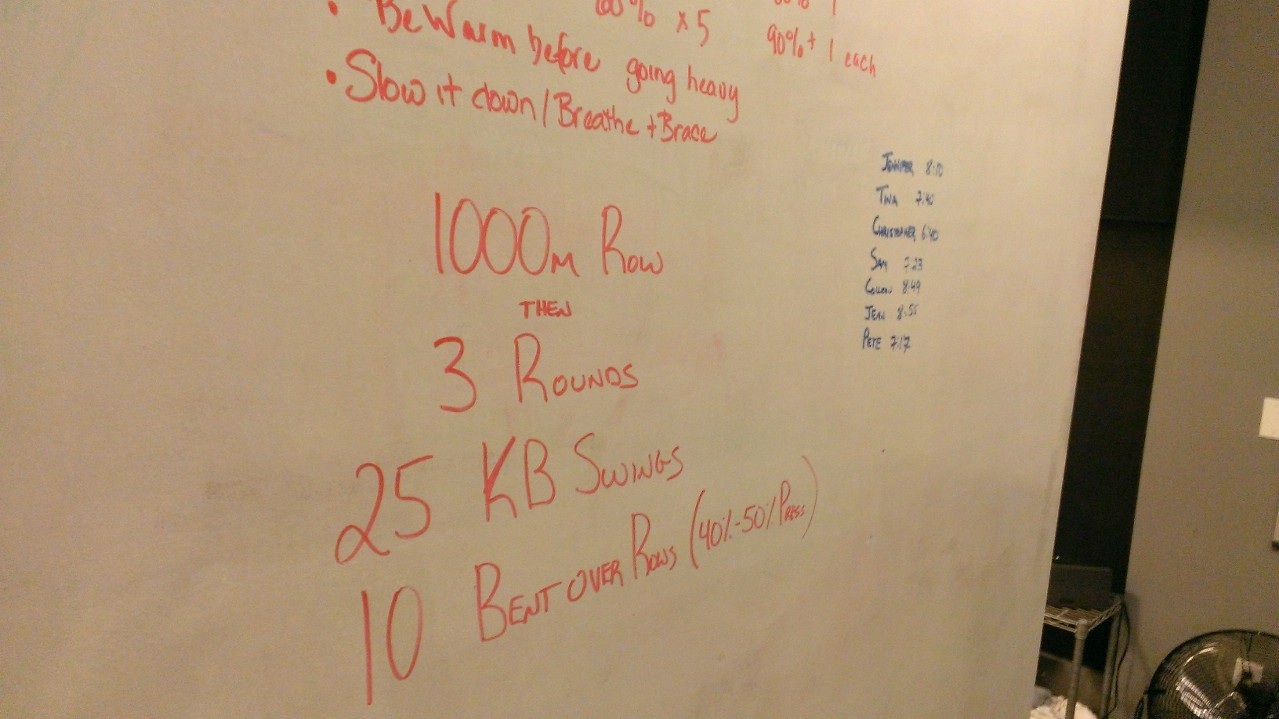 x 5
90%+ 1 each
• Be Warm before going heavy
• Slow it down/Breathe + Brace
1000m Row
THEN
3 ROUNDS
25 KB SWINGS
10 BENT OVER ROWS (40%-50% PRESS)
JENNIFER 8:10
TINA 7:40
CHRISTOPHER 6:40
SAM 7:23
8:49
JEAN 8:55
PETE 7:17